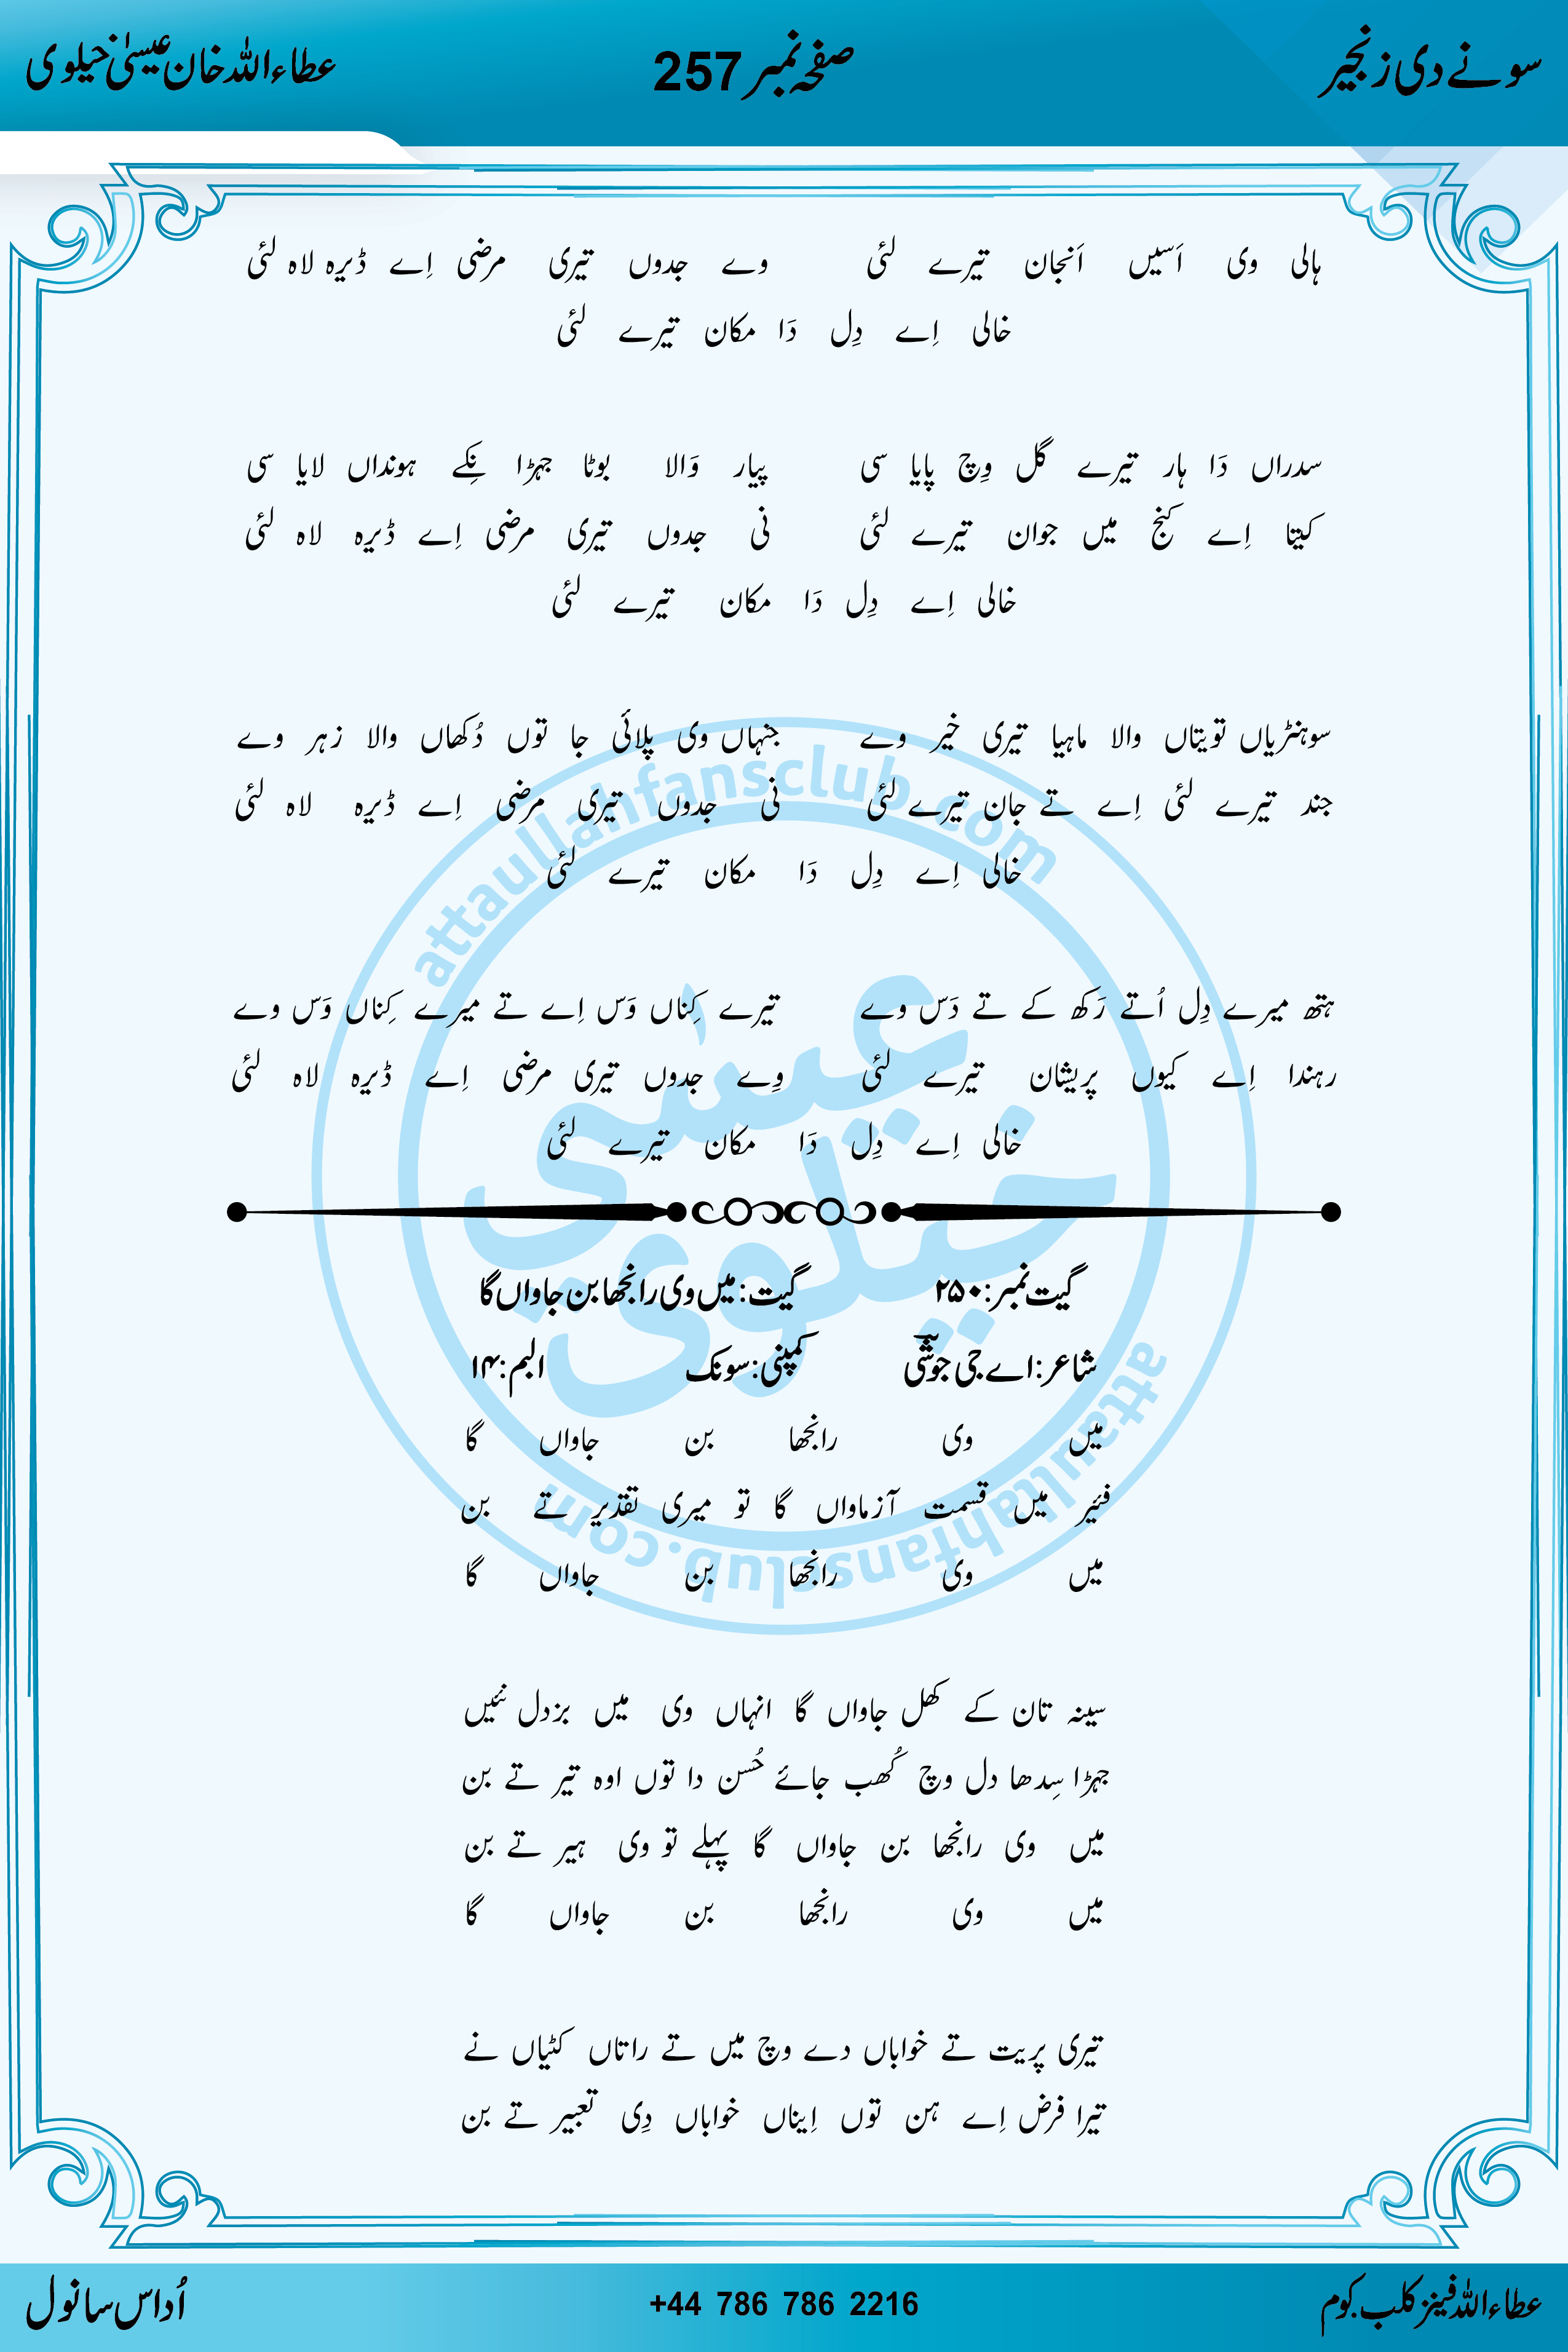 سونے دی زنجیر صفحہ نمبر 257 عطاءاللہ خان عیسیٰ خیلوی
ہالی وی اَسیں اَنجان تیرے لئی وے جدوں تیری مرضی اِے ڈیرہ لاہ لئی
خالی اِے دِل دَا مکان تیرے لئی
سدراں دَا ہار تیرے گل وِچ پایا سی پیار وَالا بوٹا جہڑا نِکے ہونداں لایا سی
کیتا اِے کنج میں جوان تیرے لئی نی جدوں تیری مرضی اِے ڈیرہ لاہ لئی
خالی اِے دِل دَا مکان تیرے لئی
سوہنڑیاں تویتاں والا ماہیا تیری خیر وے جنہاں وی پلائی جا توں دُکھاں والا زہر وے
جند تیرے لئی اِے تے جان تیرے لئی نی جدوں تیری مرضی اِے ڈیرہ لاہ لئی
خالی اِے دِل دَا مکان تیرے لئی
ہتھ میرے دِل اُتے رَکھ کے تے دَس وے تیرے کِناں وَس اِے تے میرے کِناں وَس وے
رہندا اِے کیوں پریشان تیرے لئی وِے جدوں تیری مرضی اِے ڈیرہ لاہ لئی
خالی اِے دِل دَا مکان تیرے لئی
گیت نمبر: ۲۵۰ گیت: میں وی رانجھا بن جاواں گا
شاعر: اے جی جوشؔی کمپنی: سونک البم: ۱۴
میں وی رانجھا بن جاواں گا
فئیر میں قسمت آزماواں گا تو میری تقدیر تے بن
میں وی رانجھا بن جاواں گا
سینہ تان کے کھل جاواں گا انہاں وی میں بزدل نئیں
جہڑا سِدھا دل وچ کُھب جائے حُسن دا توں اوہ تیر تے بن
میں وی رانجھا بن جاواں گا پہلے تو وی ہیر تے بن
میں وی رانجھا بن جاواں گا
تیری پریت تے خواباں دے وچ میں تے راتاں کٹیاں نے
تیرا فرض اِے ہن توں اِیناں خواباں دِی تعبیر تے بن
attaullahfansclub.com
عیسٰی
خیلوی
attaullahfansclub.com
عطاءاللہ فینز کلب.کوم +44 786 786 2216 اُداس سانول